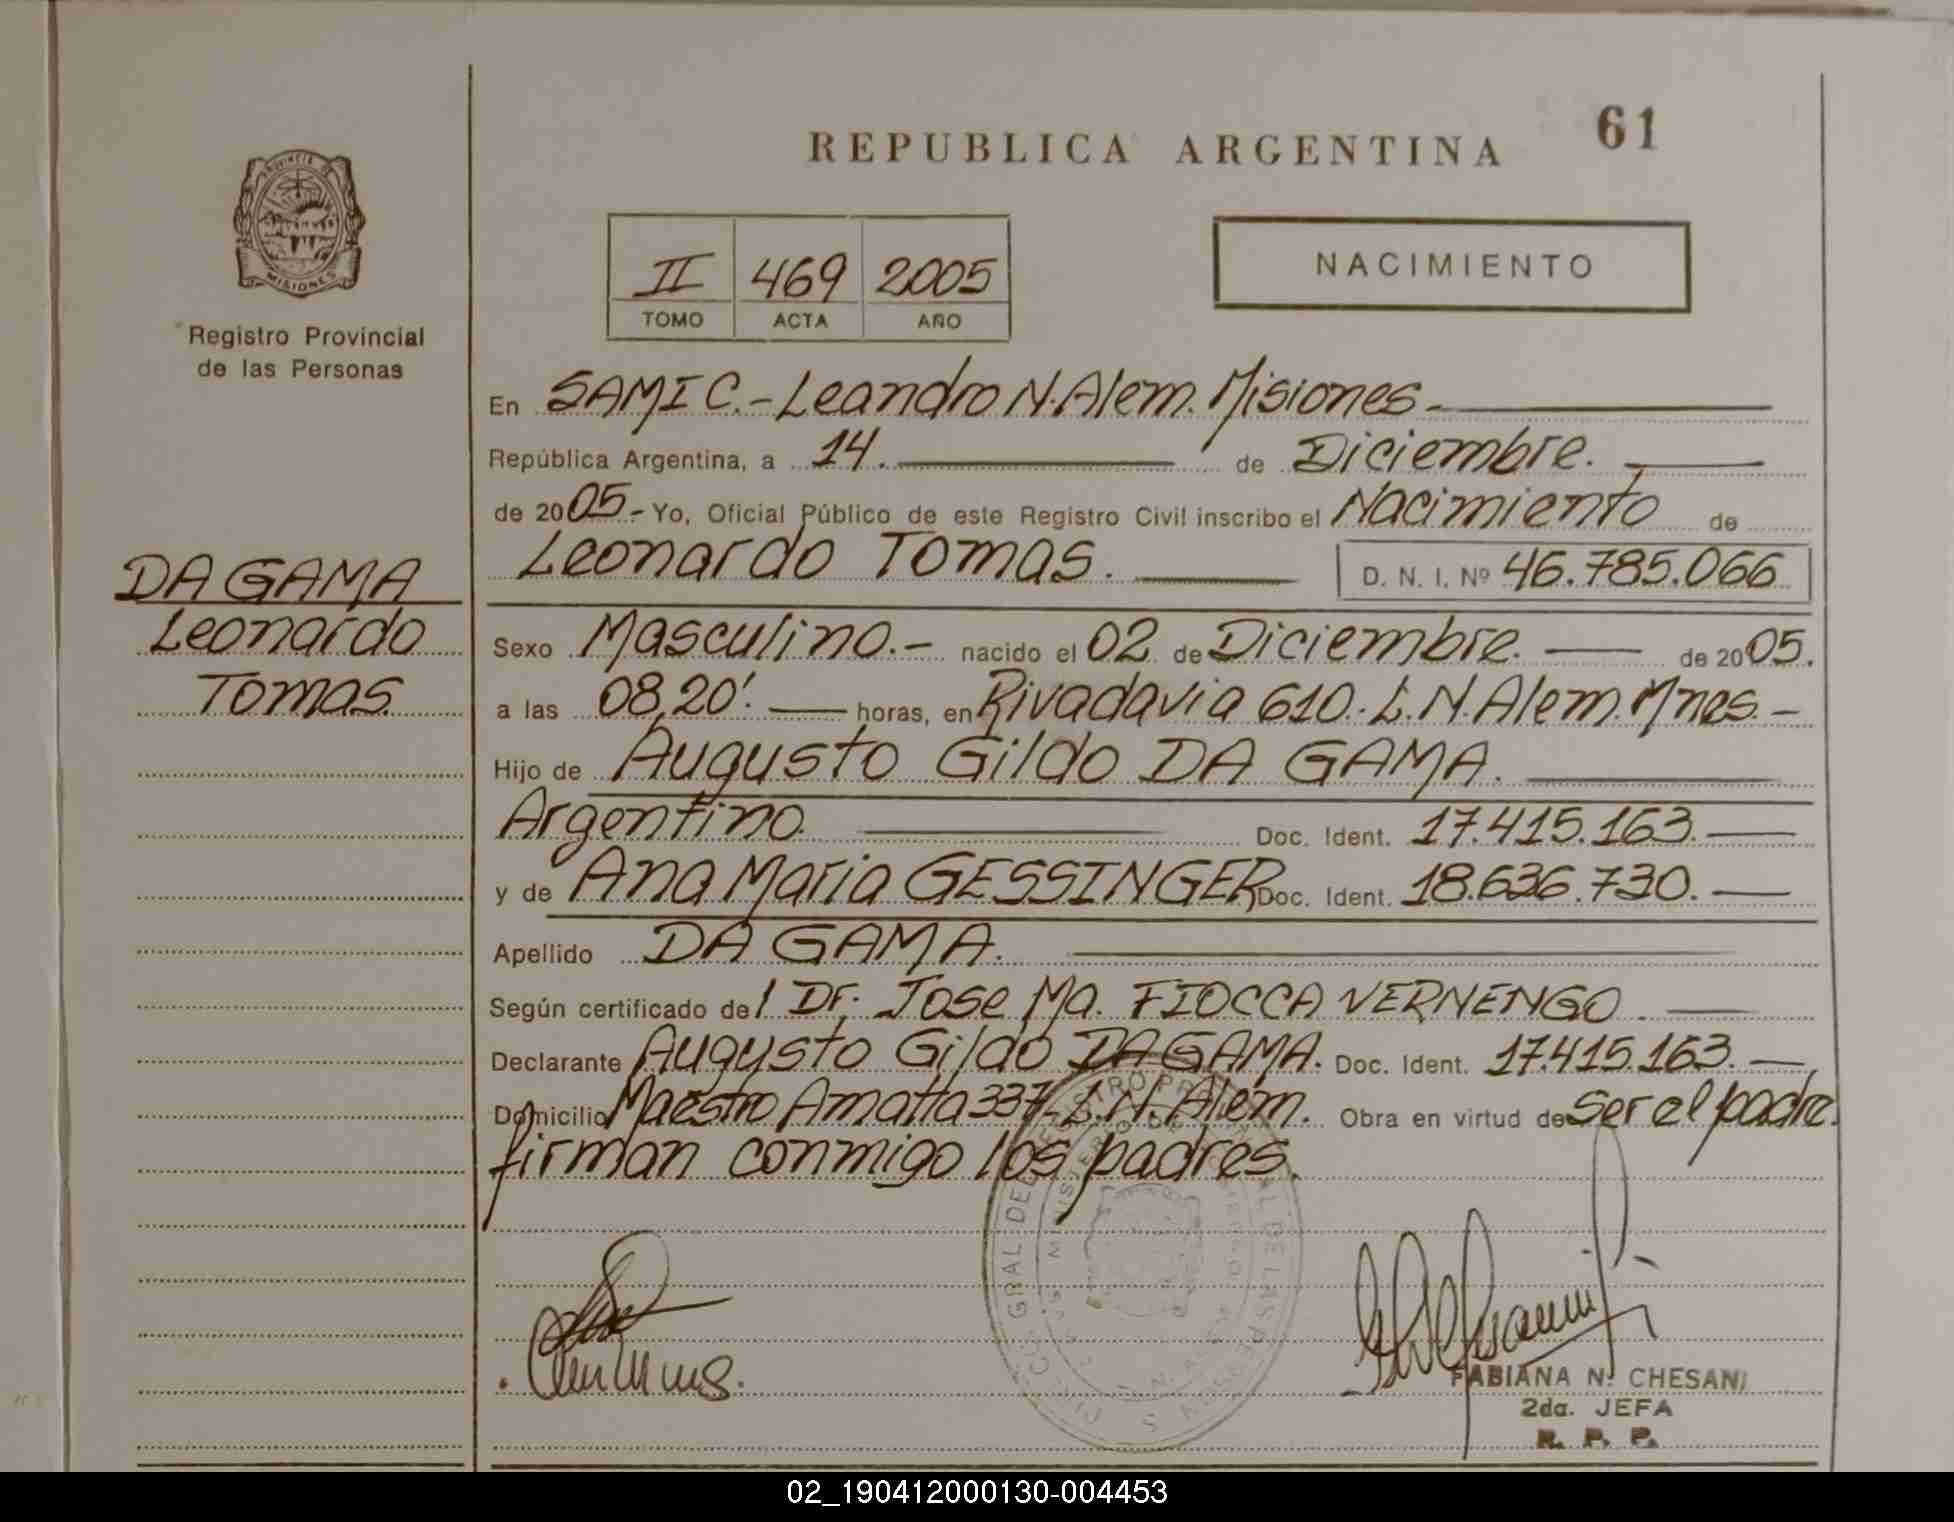 REPUBLICA ARGENTINA
61
PROVINCIA DE
MISIONES
Registro Provincial
de las Personas
II 469 2005
TOMO ACTA AÑO
NACIMIENTO
En SAMIC.- Leandro N. Alem. Misiones.-
República Argentina, a 14. de Diciembre.
de 2005.- Yo, Oficial Público de este Registro Civil inscribo el Nacimiento de
Leonardo Tomas. D. N. I. Nº 46.785.066
DA GAMA
Leonardo
Tomas
Sexo Masculino.- nacido el 02 de Diciembre. de 2005.
a las 08,20'. horas, en Rivadavia 610.- L.N. Alem. Mnes.-
Hijo de Augusto Gildo DA GAMA.
Argentino. Doc. Ident. 17.415.163.
y de Ana Maria GESSINGER Doc. Ident. 18.636.730.
Apellido DA GAMA.
Según certificado del Dr. Jose Ma. FIOCCA VERNENGO.
Declarante Augusto Gildo DA GAMA. Doc. Ident. 17.415.163.
Domicilio Maestro Amatta 337- L.N. Alem. Obra en virtud de ser el padre.
firman conmigo los padres.
FABIANA N. CHESANI
2da. JEFA
R. P. P.
02_190412000130-004453